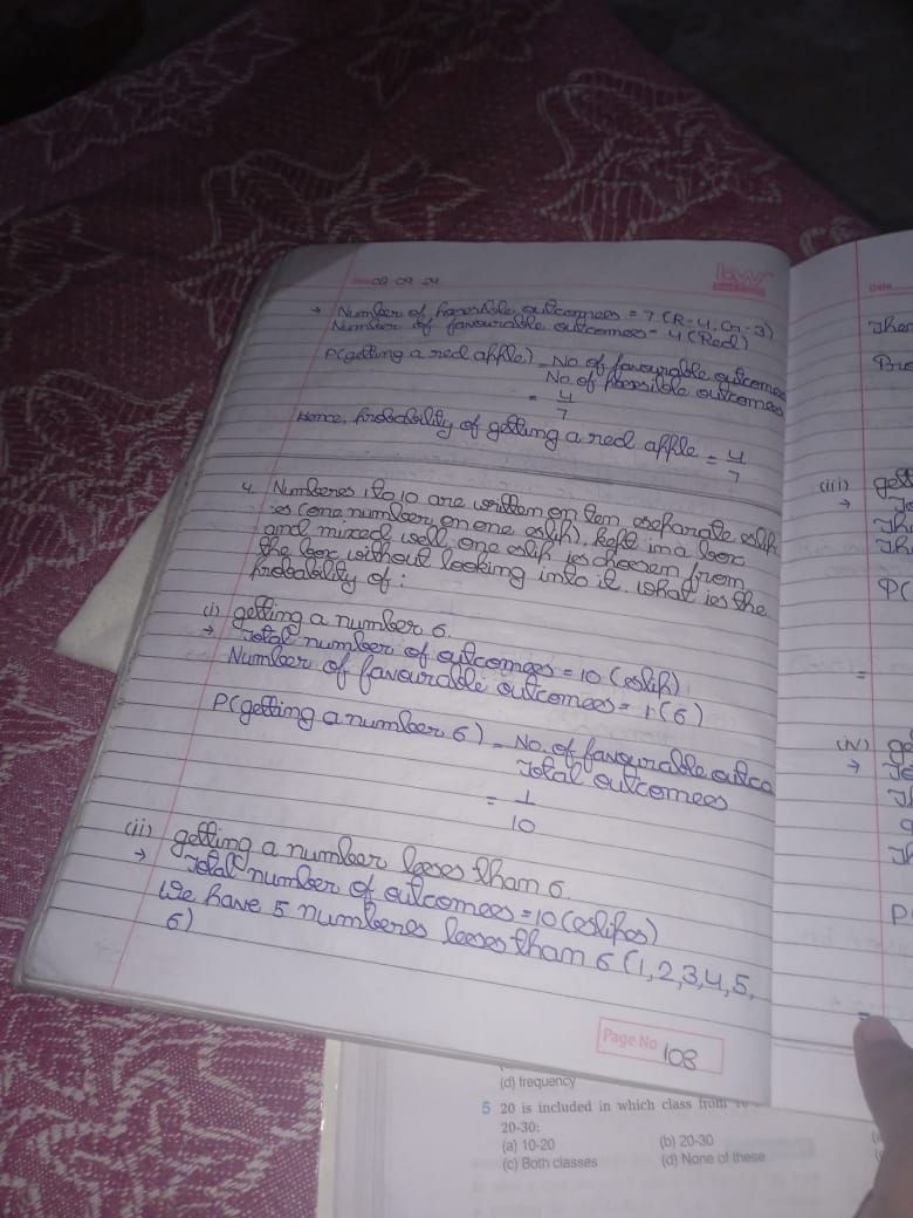 09 09 24
→ Number of possible outcomes = 7 (R-4, G-3)
Number of favourable outcomes = 4 (Red)
P(getting a red apple) = No of favourable outcomes
No. of possible outcomes
= 4
7
Hence, probability of getting a red apple = 4
7
4. Numbers 1 to 10 are written on ten separate slip
s (one number on one slip), kept in a box
and mixed well. one slip is choosen from
the box without looking into it. what is the
probability of :
(i) getting a number 6.
→ Total number of outcomes = 10 (slip)
Number of favourable outcomes = 1 (6)
P(getting a number 6) = No. of favourable outco
Total outcomes
= 1
10
(ii) getting a number less than 6.
→ Total number of outcomes = 10 (slips)
We have 5 numbers less than 6 (1,2,3,4,5,
6)
Page No 108
Date
(iii) get
→
P(
=
(iv) ge
→
P
(d) frequency
5 20 is included in which class from
20-30:
(a) 10-20 (b) 20-30
(c) Both classes (d) None of these